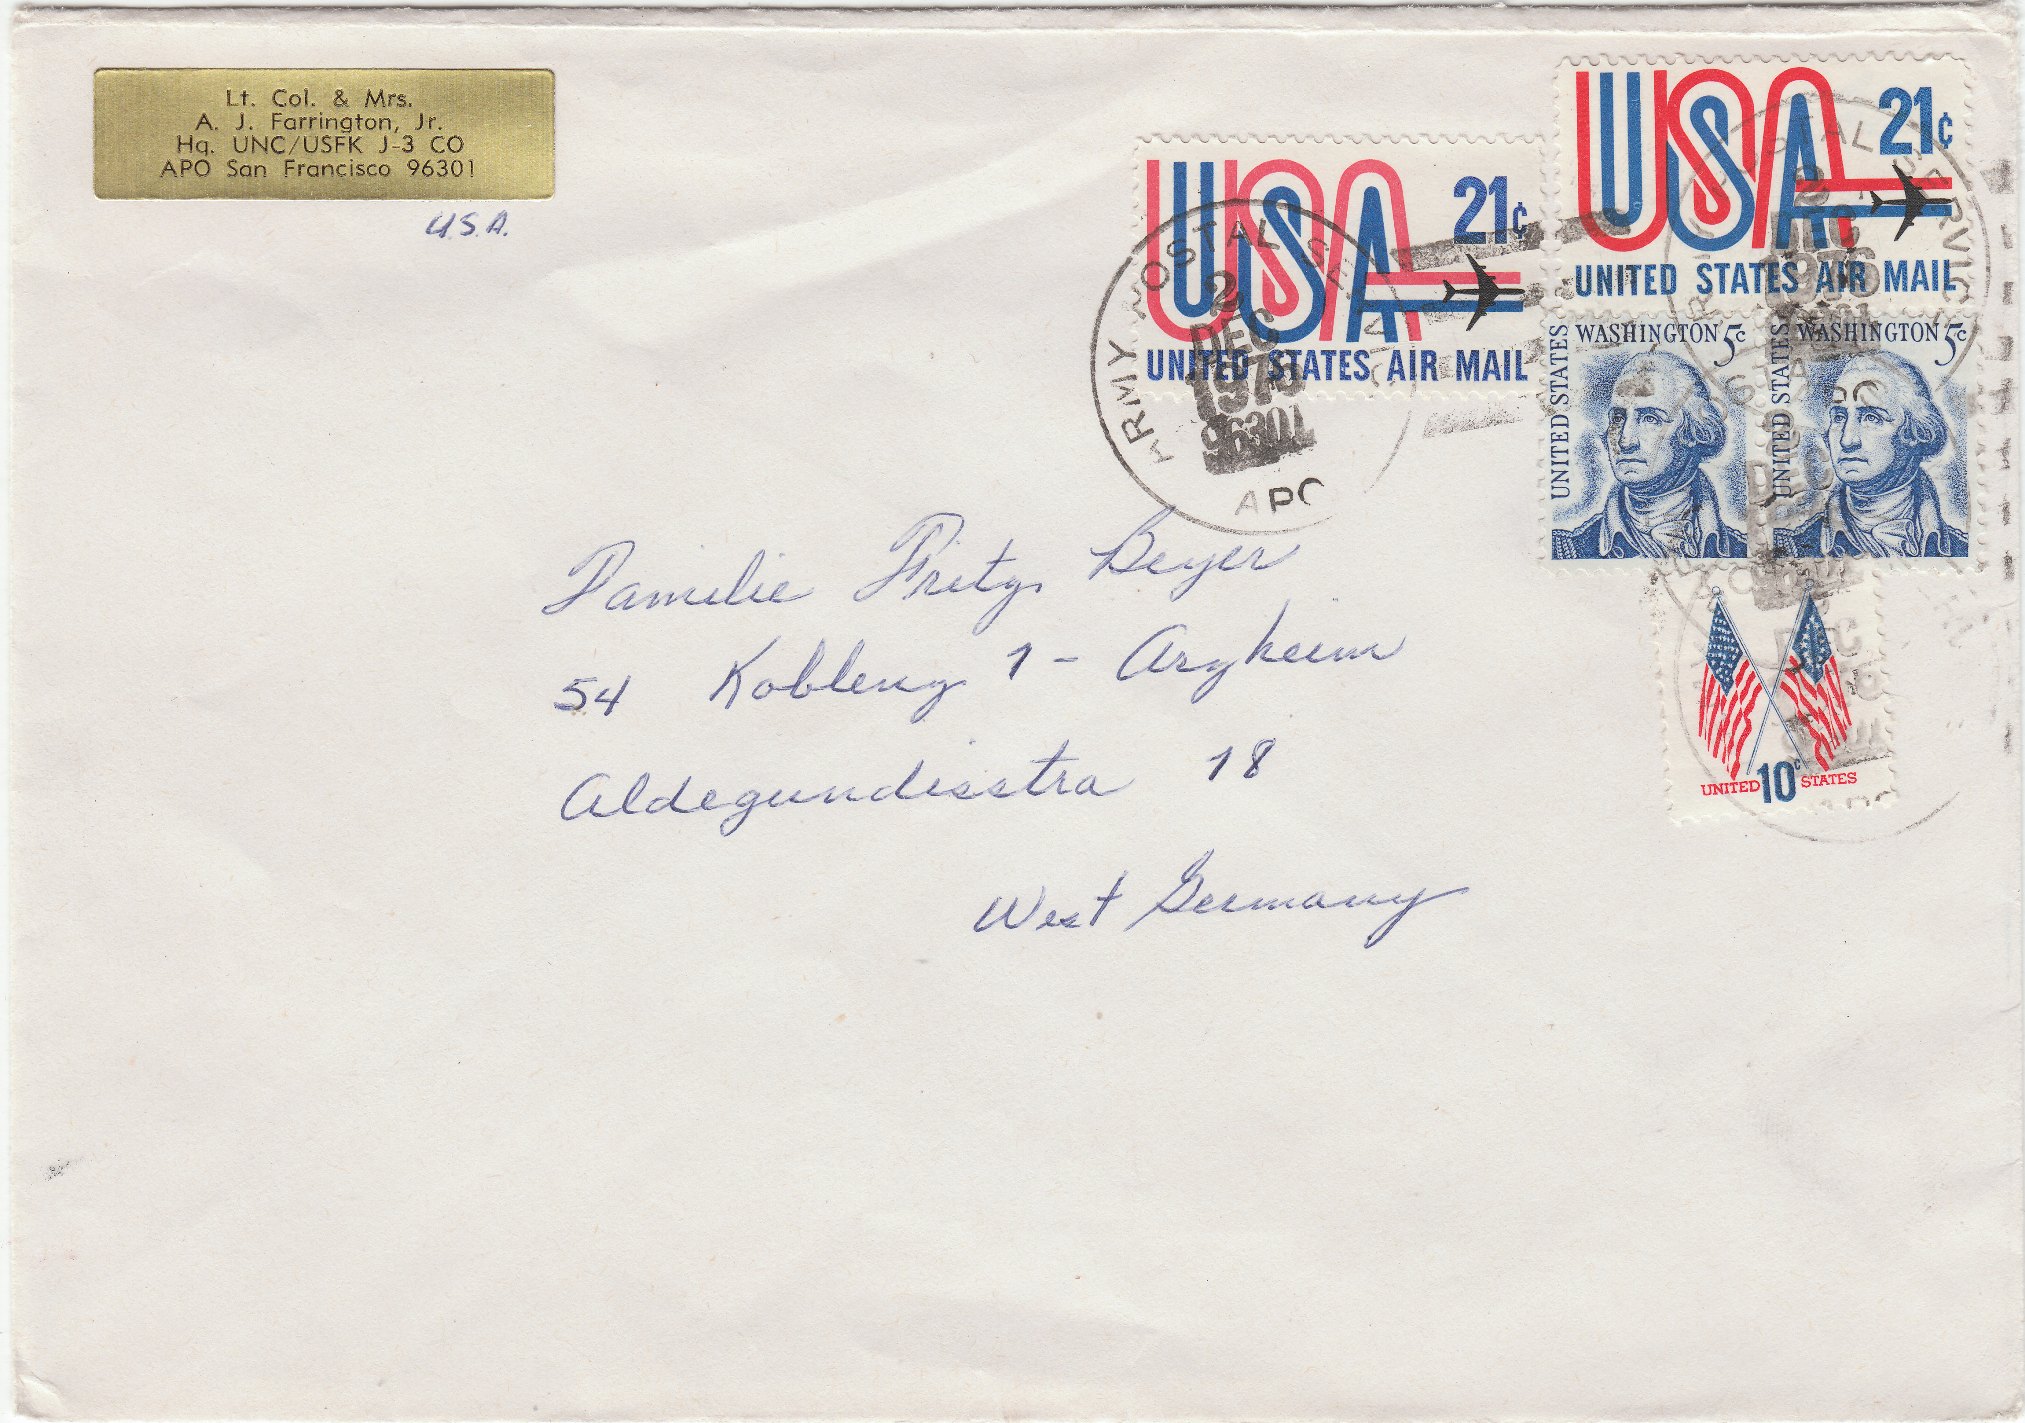 Lt. Col. & Mrs.
A. J. Farrington, Jr.
Hq. UNC/USFK J-3 CO
APO San Francisco 96301
U.S.A.
USA 21c
UNITED STATES AIR MAIL
USA 21c
UNITED STATES AIR MAIL
ARMY POSTAL SERVICE
2
DEC
1976
96301
APO
UNITED STATES
WASHINGTON 5c
UNITED STATES
WASHINGTON 5c
UNITED 10c STATES
Familie Fritz Beyer
54 Koblenz 1 - Arzheim
Aldegundisstra 18
West Germany